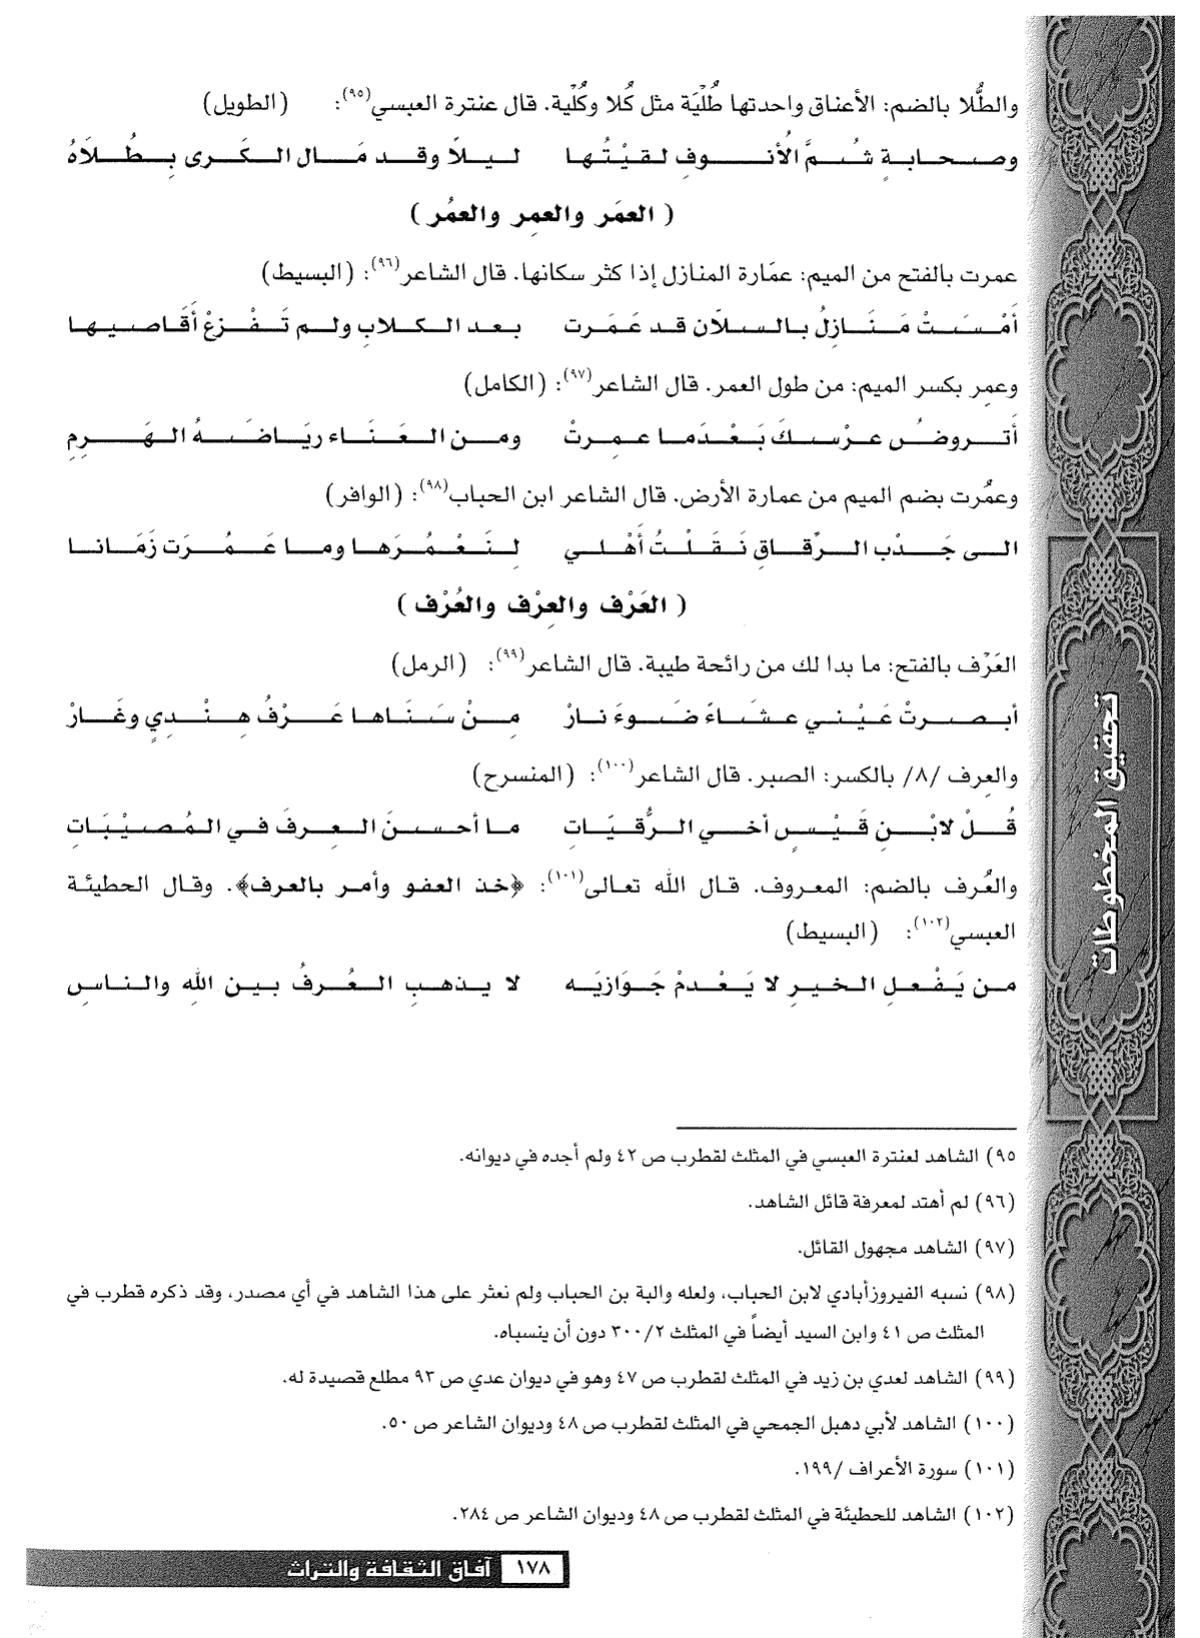 والطُّلا بالضم: الأعناق واحدتها طُلْيَة مثل كُلا وكُلْية. قال عنترة العبسي(٩٥): (الطويل)
وصحابةٍ شُمَّ الأُنوفِ لقيْتُها ليلاً وقد مَال الكَرى بِطُلاَهُ
( العمَر والعمِر والعمُر )
عمرت بالفتح من الميم: عمَارة المنازل إذا كثر سكانها. قال الشاعر(٩٦): (البسيط)
أَمْسَتْ مَنَازِلُ بالسلاّن قد عَمَرت بعد الكلابِ ولم تَفْزعْ أَقَاصيها
وعمِر بكسر الميم: من طول العمر. قال الشاعر(٩٧): (الكامل)
أَتروضُ عرْسكَ بَعْدَما عمِرتْ ومن العَنَاء ريَاضَهُ الهَرِمِ
وعمُرت بضم الميم من عمارة الأرض. قال الشاعر ابن الحباب(٩٨): (الوافر)
الى جَدْب الرِّقاقِ نَقَلْتُ أَهْلي لِنَعْمُرَها وما عَمُرَت زَمَانا
( العَرْف والعِرْف والعُرْف )
العَرْف بالفتح: ما بدا لك من رائحة طيبة. قال الشاعر(٩٩): (الرمل)
أبصرتْ عَيْني عشَاءً ضَوءَ نارْ مِنْ سَنَاها عَرْفُ هِنْديٍ وغَارْ
والعِرف /٨/ بالكسر: الصبر. قال الشاعر(١٠٠): (المنسرح)
قُلْ لابْنِ قَيْسٍ أخي الرُّقيَاتِ ما أحسنَ العِرفَ في المُصيْبَاتِ
والعُرف بالضم: المعروف. قال الله تعالى(١٠١): ﴿خذ العفو وأمر بالعرف﴾. وقال الحطيئة
العبسي(١٠٢): (البسيط)
من يَفْعلِ الخيرِ لا يَعْدمْ جَوَازيَه لا يذهبِ العُرفُ بين اللهِ والناسِ
٩٥) الشاهد لعنترة العبسي في المثلث لقطرب ص ٤٢ ولم أجده في ديوانه.
(٩٦) لم أهتد لمعرفة قائل الشاهد.
(٩٧) الشاهد مجهول القائل.
(٩٨) نسبه الفيروزأبادي لابن الحباب، ولعله والبة بن الحباب ولم نعثر على هذا الشاهد في أي مصدر، وقد ذكره قطرب في
المثلث ص ٤١ وابن السيد أيضاً في المثلث ٣٠٠/٢ دون أن ينسباه.
(٩٩) الشاهد لعدي بن زيد في المثلث لقطرب ص ٤٧ وهو في ديوان عدي ص ٩٣ مطلع قصيدة له.
(١٠٠) الشاهد لأبي دهبل الجمحي في المثلث لقطرب ص ٤٨ وديوان الشاعر ص ٥٠.
(١٠١) سورة الأعراف /١٩٩.
(١٠٢) الشاهد للحطيئة في المثلث لقطرب ص ٤٨ وديوان الشاعر ص ٢٨٤.
١٧٨ آفاق الثقافة والتراث
تحقيق المخطوطات